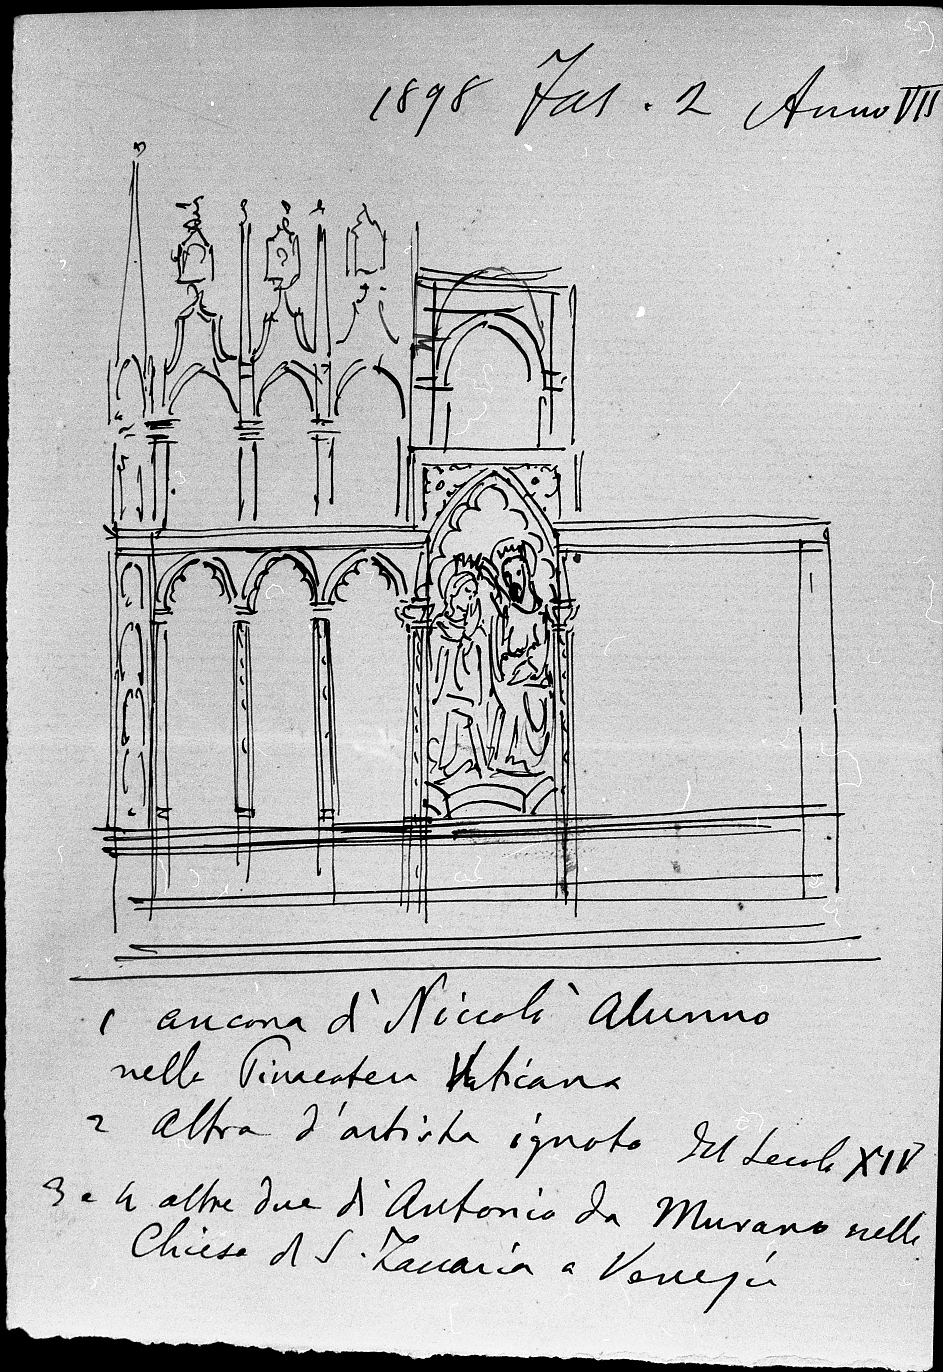 1898 Fas. 2 Anno VII
1 ancona di Niccolò Alunno
nella Pinacoteca Vaticana
2 altra d'artista ignoto del Secolo XIV
3 e 4 altre due di Antonio da Murano nella
Chiesa di S. Zaccaria a Venezia